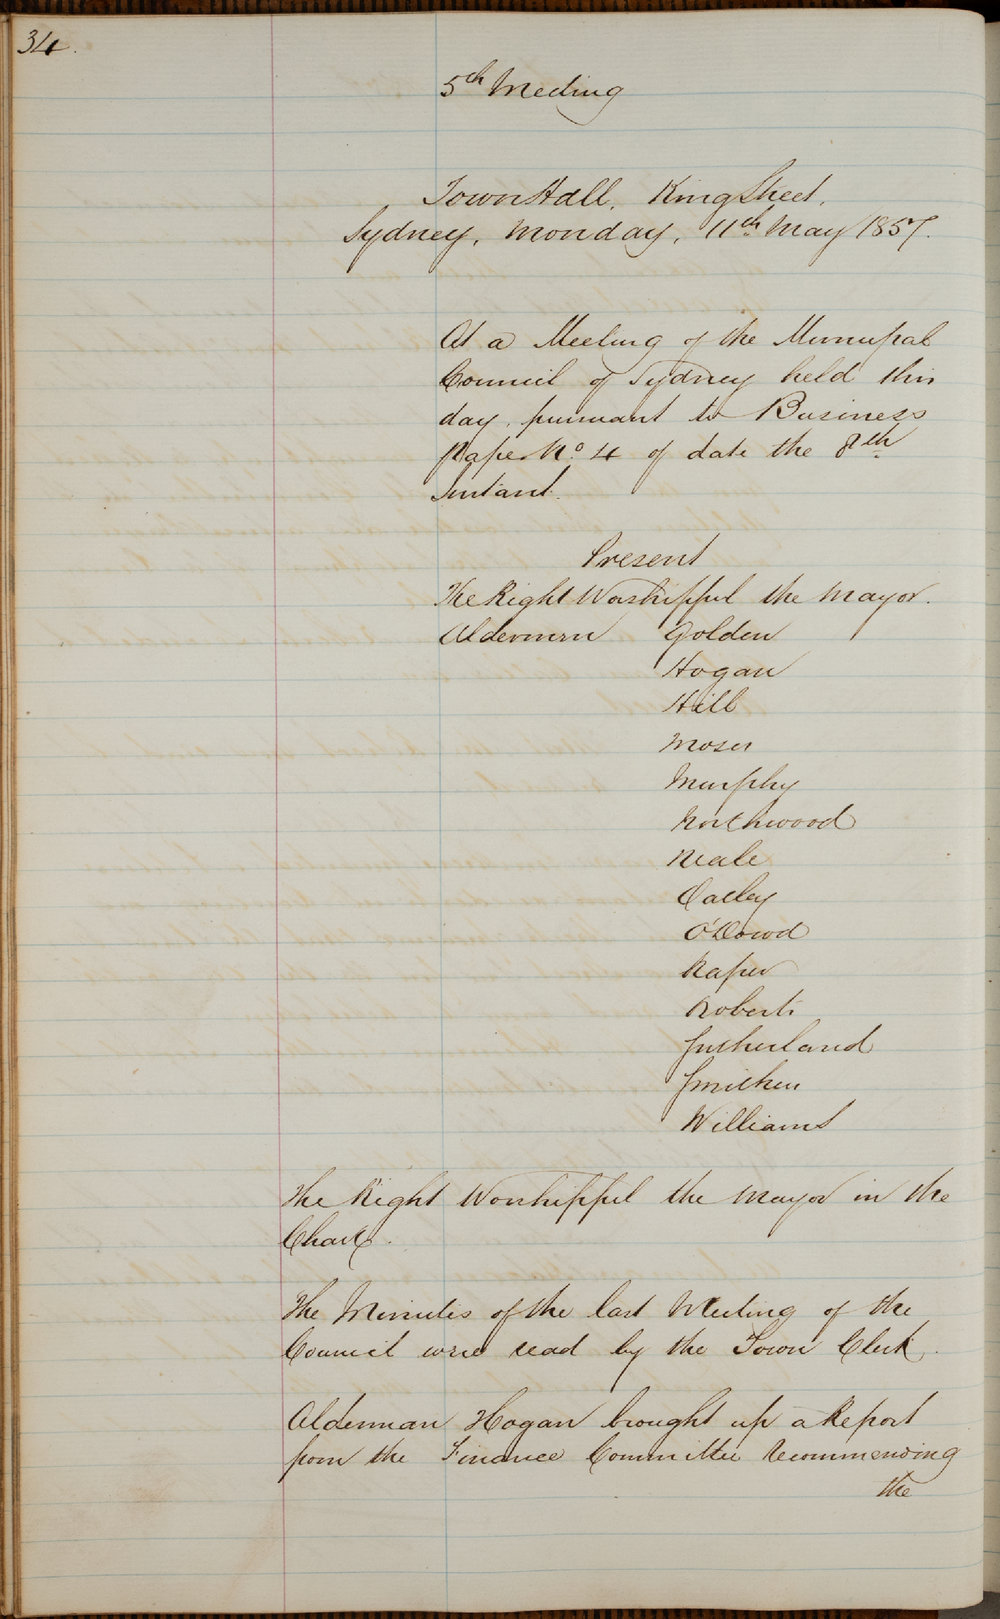 34.
5th Meeting
Town Hall, King Street,
Sydney, Monday, 11th May 1857.
At a Meeting of the Municipal
Council of Sydney held this
day, pursuant to Business
Paper No. 4 of date the 8th
Instant.
Present
The Right Worshipful the Mayor.
Aldermen Golden
Hogan
Hill
Moser
Murphy
Northwood
Neale
Oatley
O'Dowd
Raper
Roberts
Sutherland
Smithers
Williams
The Right Worshipful the Mayor in the
Chair.
The Minutes of the last Meeting of the
Council were read by the Town Clerk.
Alderman Hogan brought up a Report
from the Finance Committee recommending
the